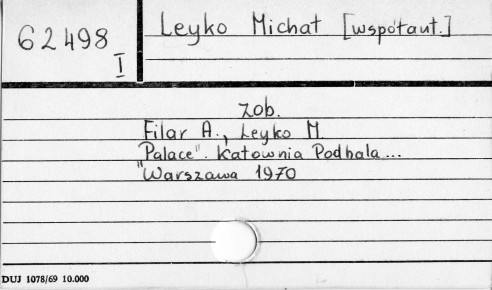 62498
I
Leyko Michał [współaut.]
Zob.
Filar A., Leyko M.
"Palace". Katownia Podhala...
Warszawa 1970
DUJ 1078/69 10.000